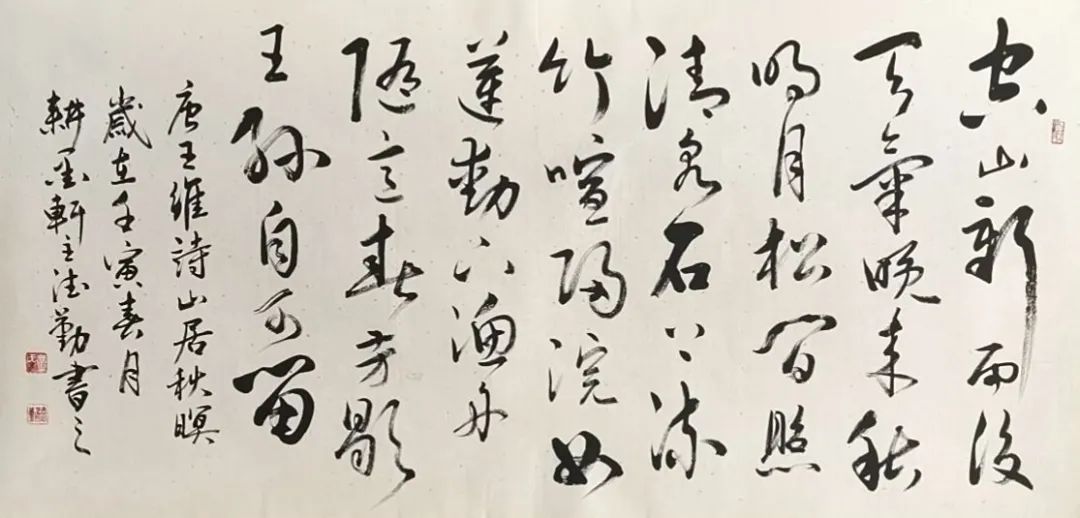 空山新雨後
天氣晚来秋
明月松间照
清泉石上流
竹喧歸浣女
蓮動下漁舟
隨意春芳歇
王孫自可留
唐王維詩山居秋暝
歲在壬寅春月
耕墨軒主德勤書之